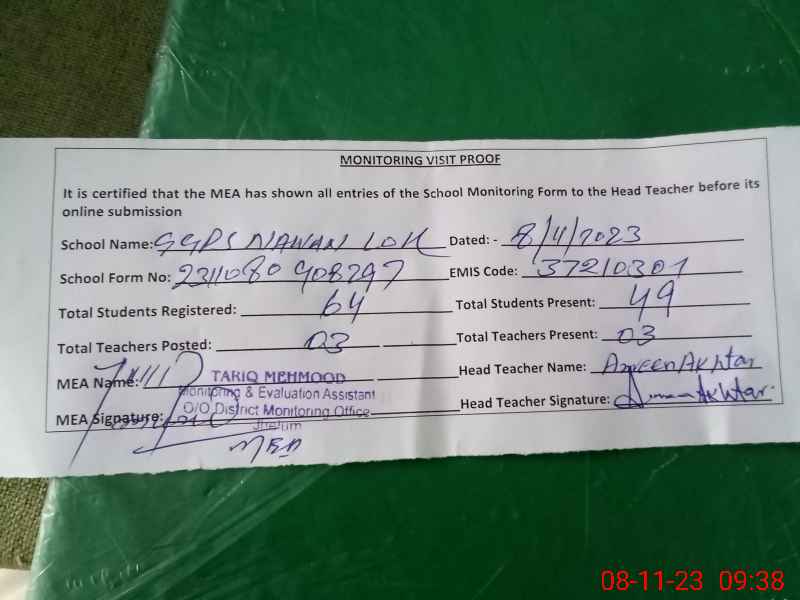 MONITORING VISIT PROOF
It is certified that the MEA has shown all entries of the School Monitoring Form to the Head Teacher before its
online submission
School Name: GGPS NAWAN LOK Dated: - 8/11/2023
School Form No: 2311080908297 EMIS Code: 37210301
Total Students Registered: 64 Total Students Present: 49
Total Teachers Posted: 03 Total Teachers Present: 03
MEA Name: TARIQ MEHMOOD Head Teacher Name: Akhtar
Monitoring & Evaluation Assistant
MEA Signature: O/O District Monitoring Office Head Teacher Signature: Akhtar
Jhelum
MEA
08-11-23 09:38